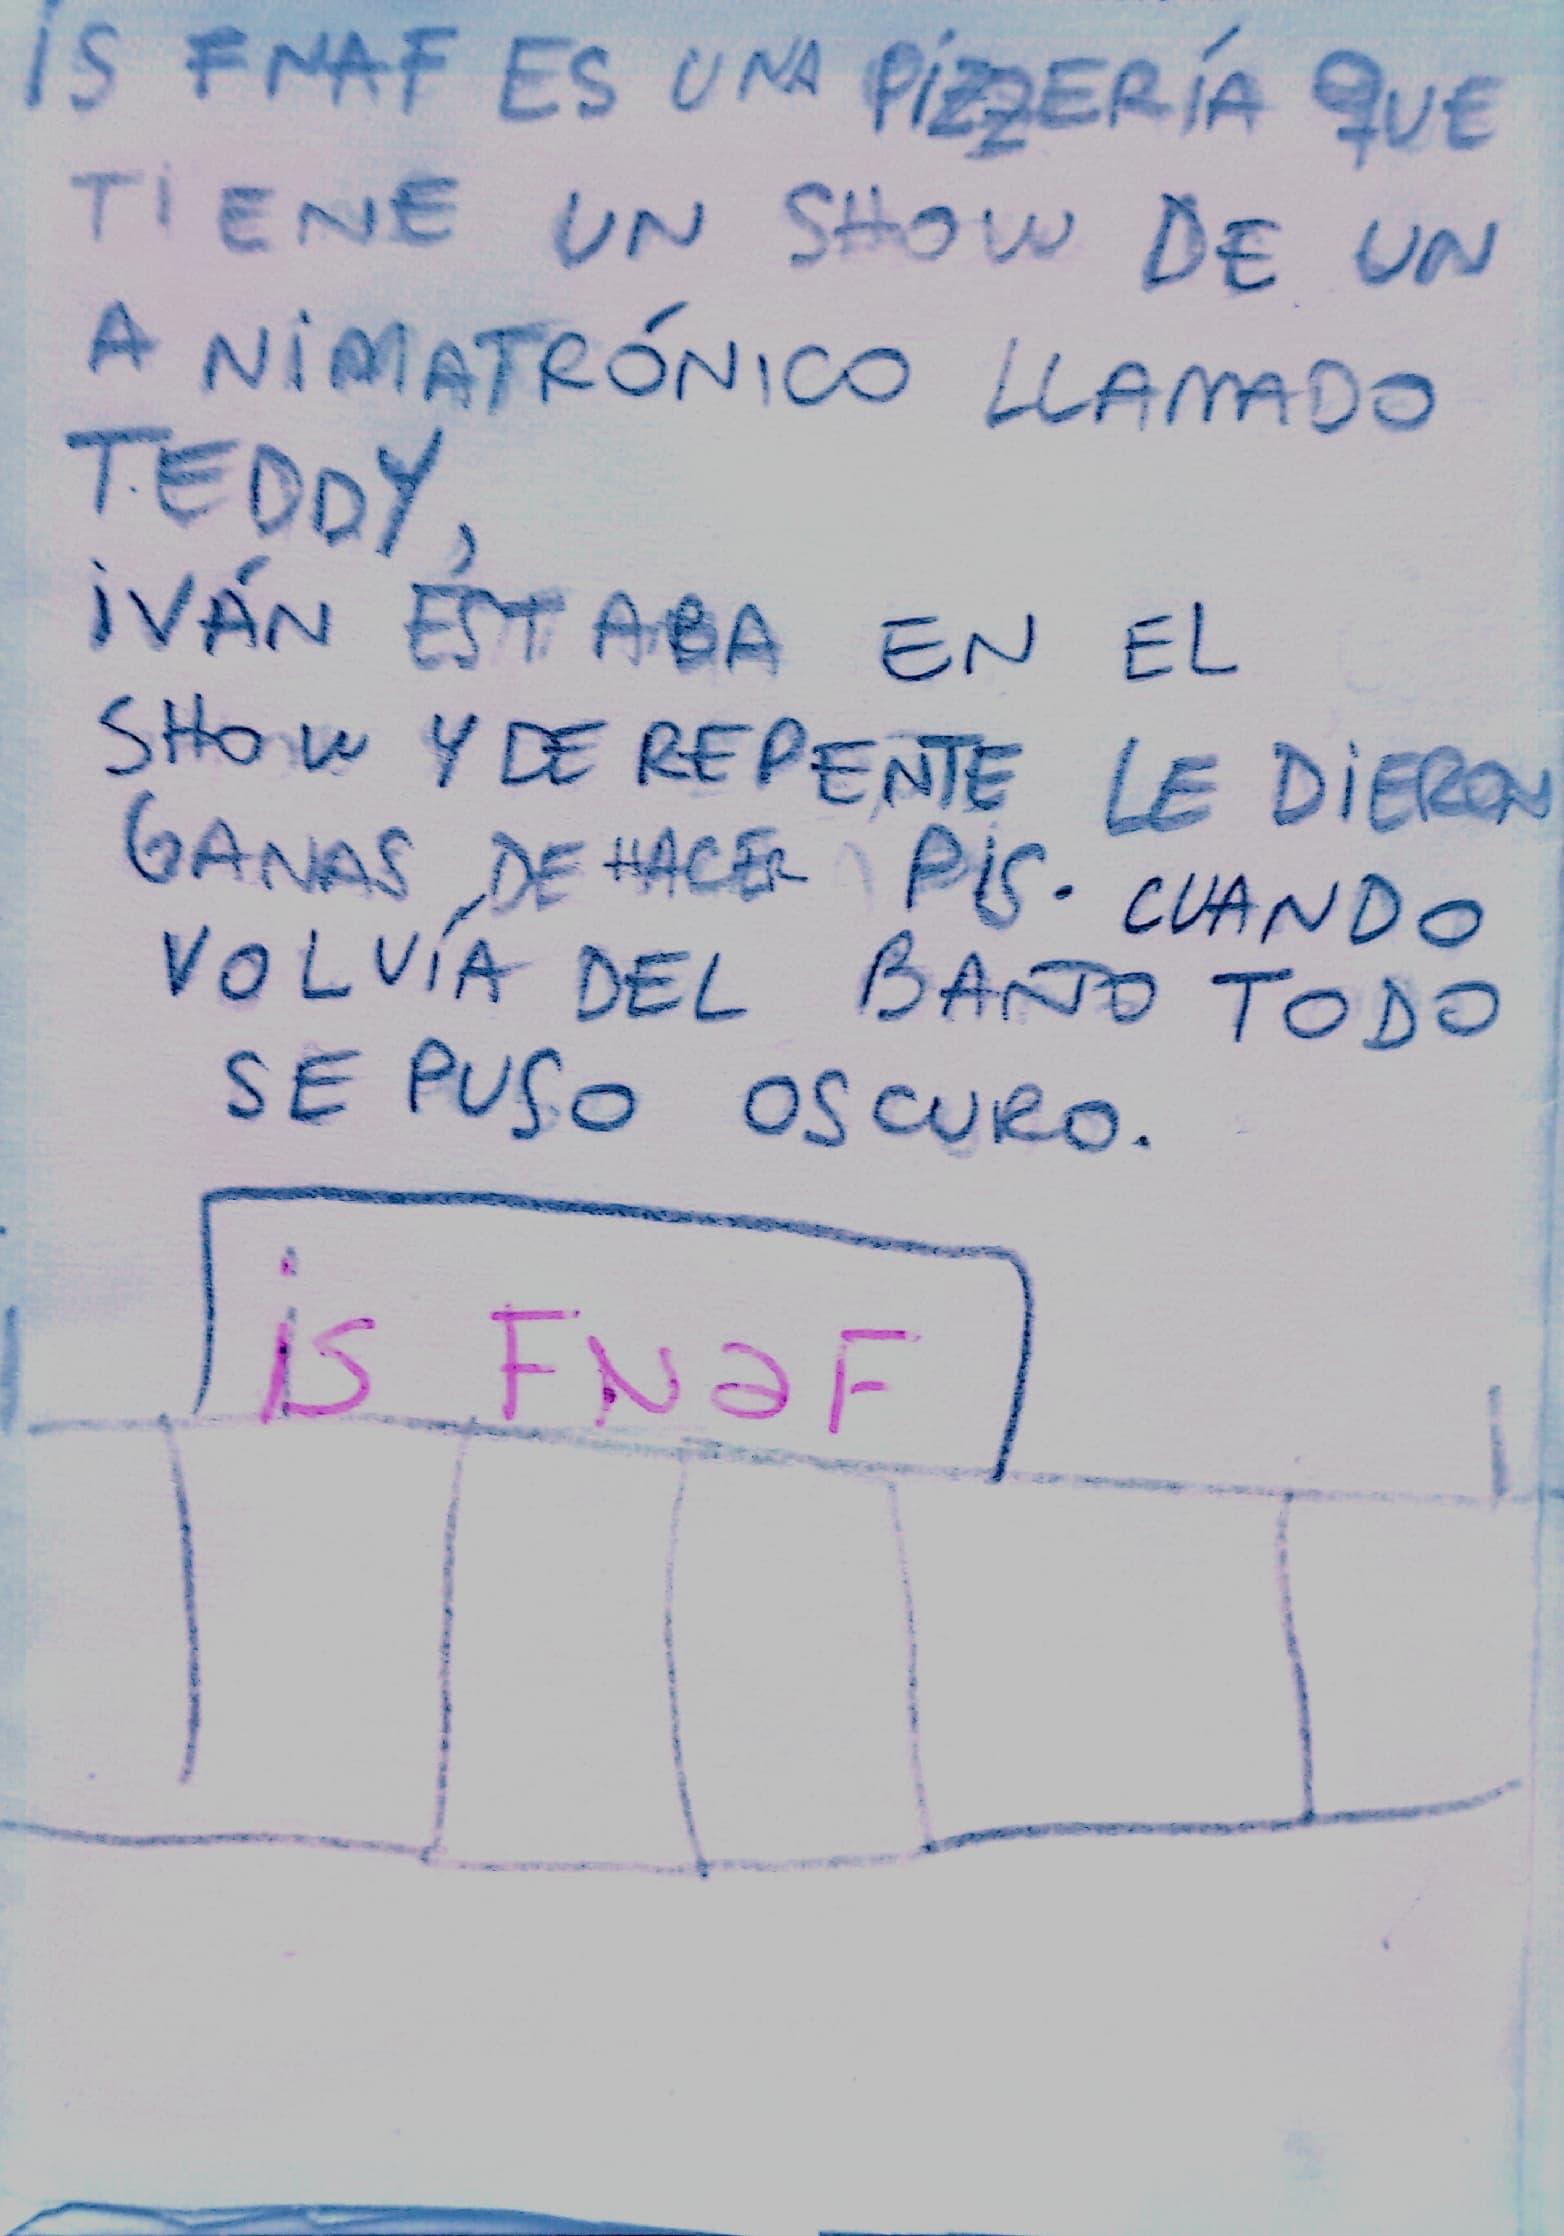 iS FNAF ES UNA PiZZERÍA QUE
TIENE UN SHOW DE UN
ANiMATRÓNICO LLAMADO
TEDDY,
iVÁN ESTABA EN EL
SHOW Y DE REPENTE LE DiERON
GANAS DE HACER PiS. CUANDO
VOLVÍA DEL BAÑO TODO
SE PUSO OSCURO.
iS FNaF